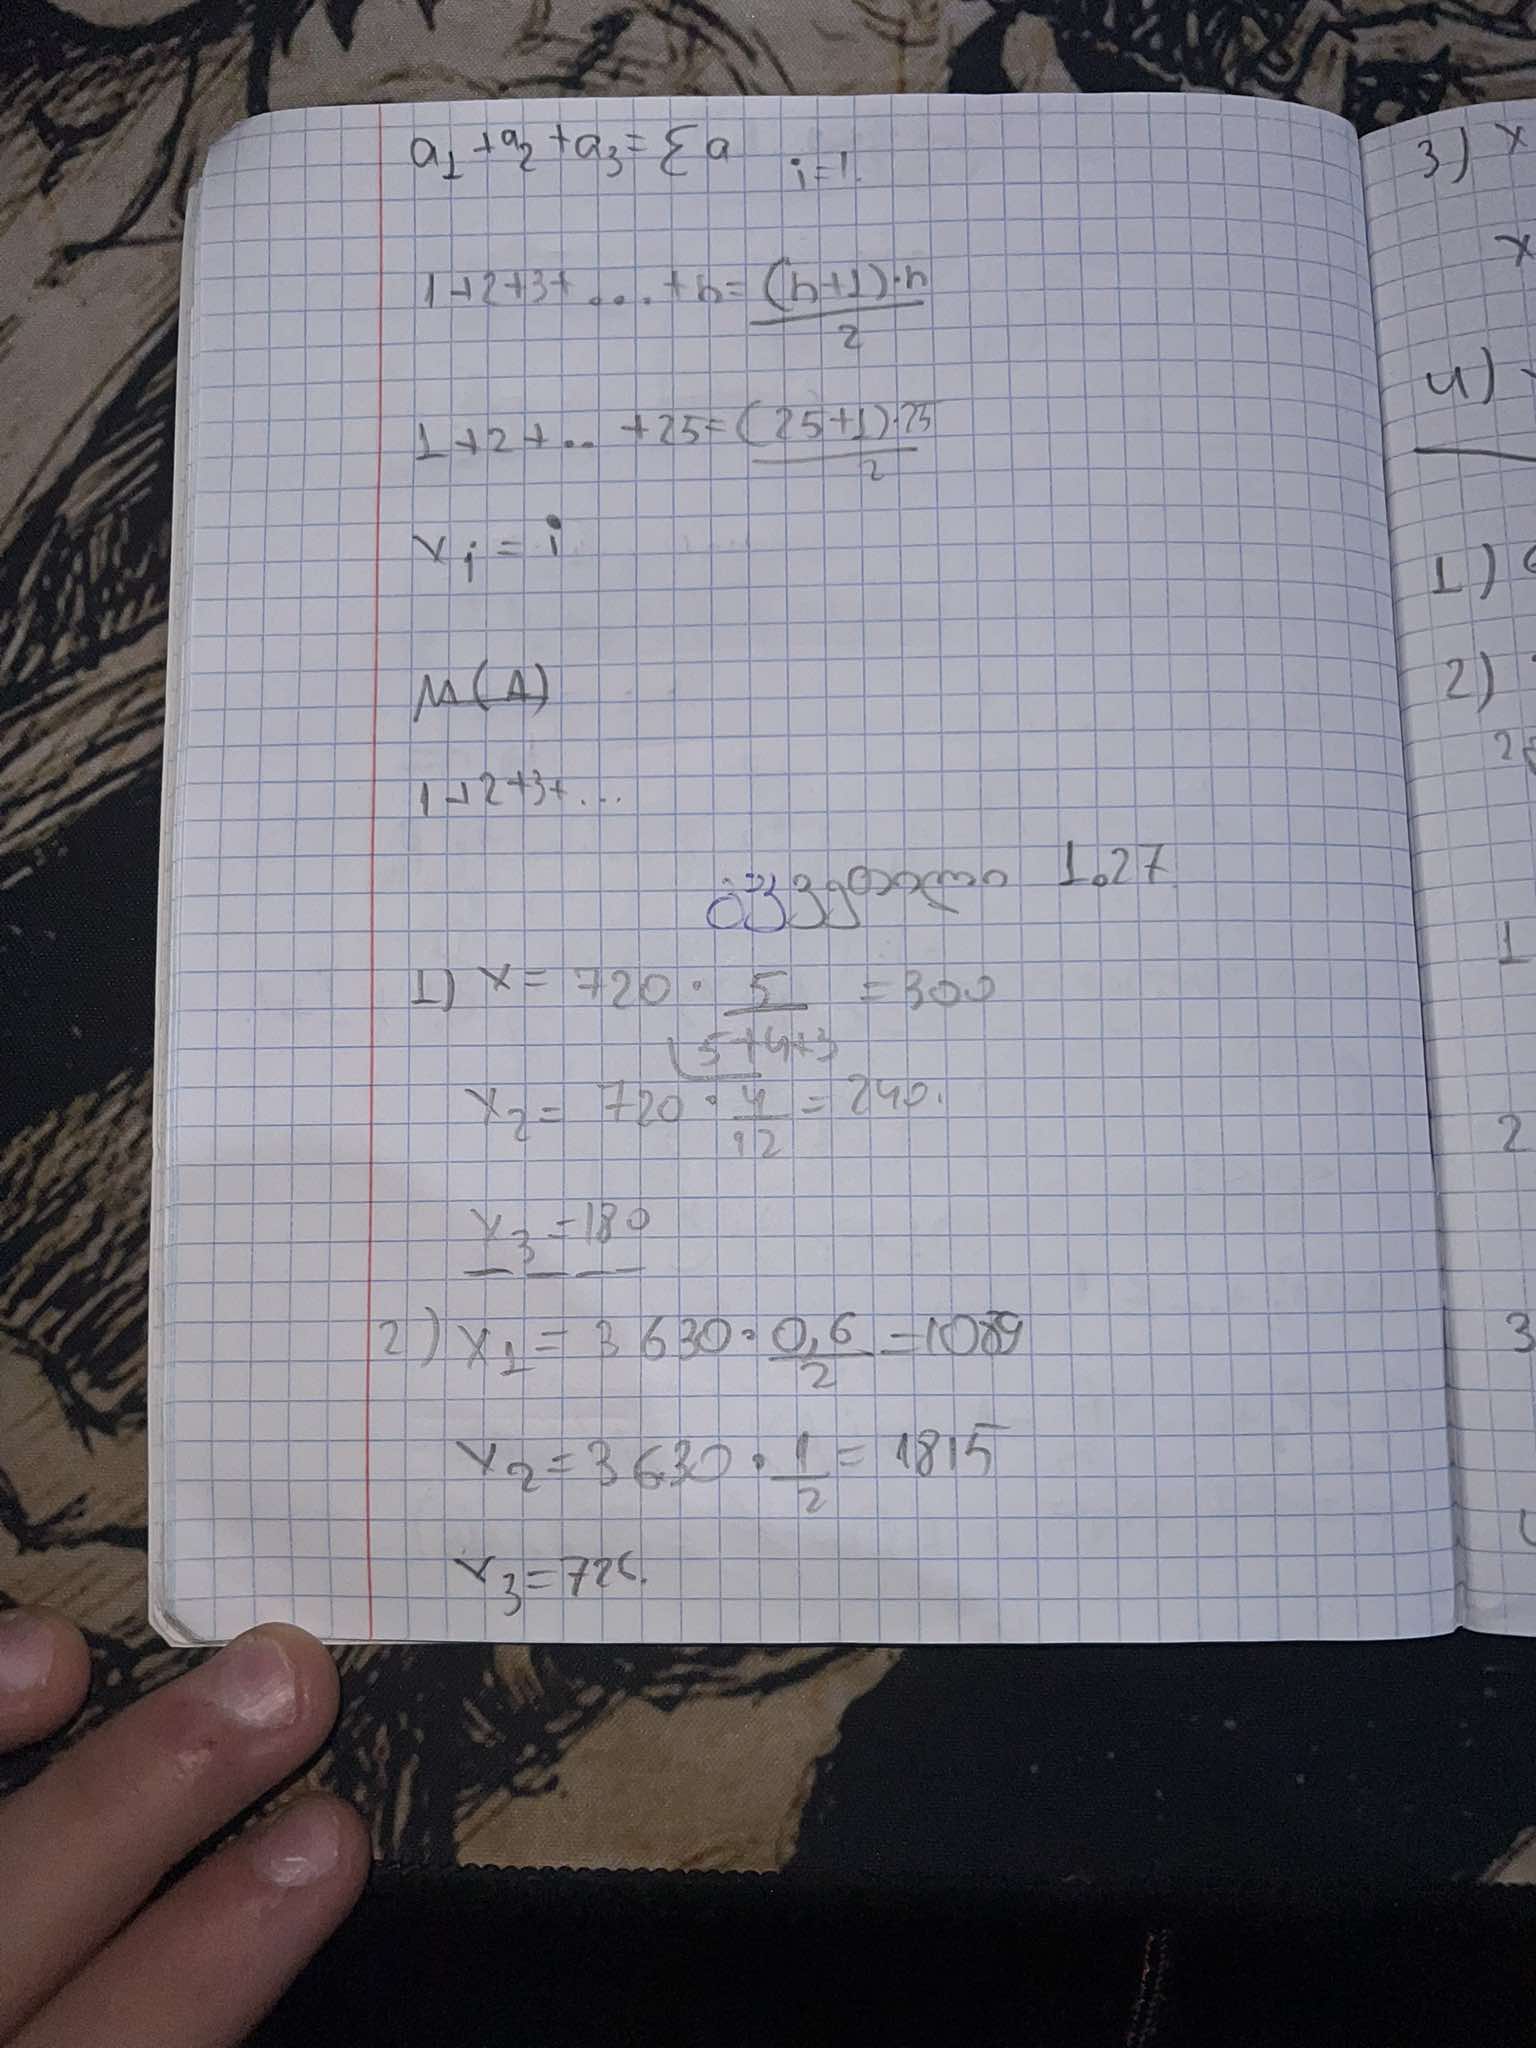 a₁+a₂+a₃=Σa i=1.
1+2+3+...+n=(n+1)·n/2
1+2+.. +25=(25+1)·25/2
xᵢ=i
M(A)
1+2+3+...
1.27
1) x=720·5/(5+4+3)=300
x₂=720·4/12=240.
x₃=180
2) x₁=3630·0,6/2=1089
x₂=3630·1/2=1815
x₃=726.
3) x
x
4)
1)
2)
1
2
3